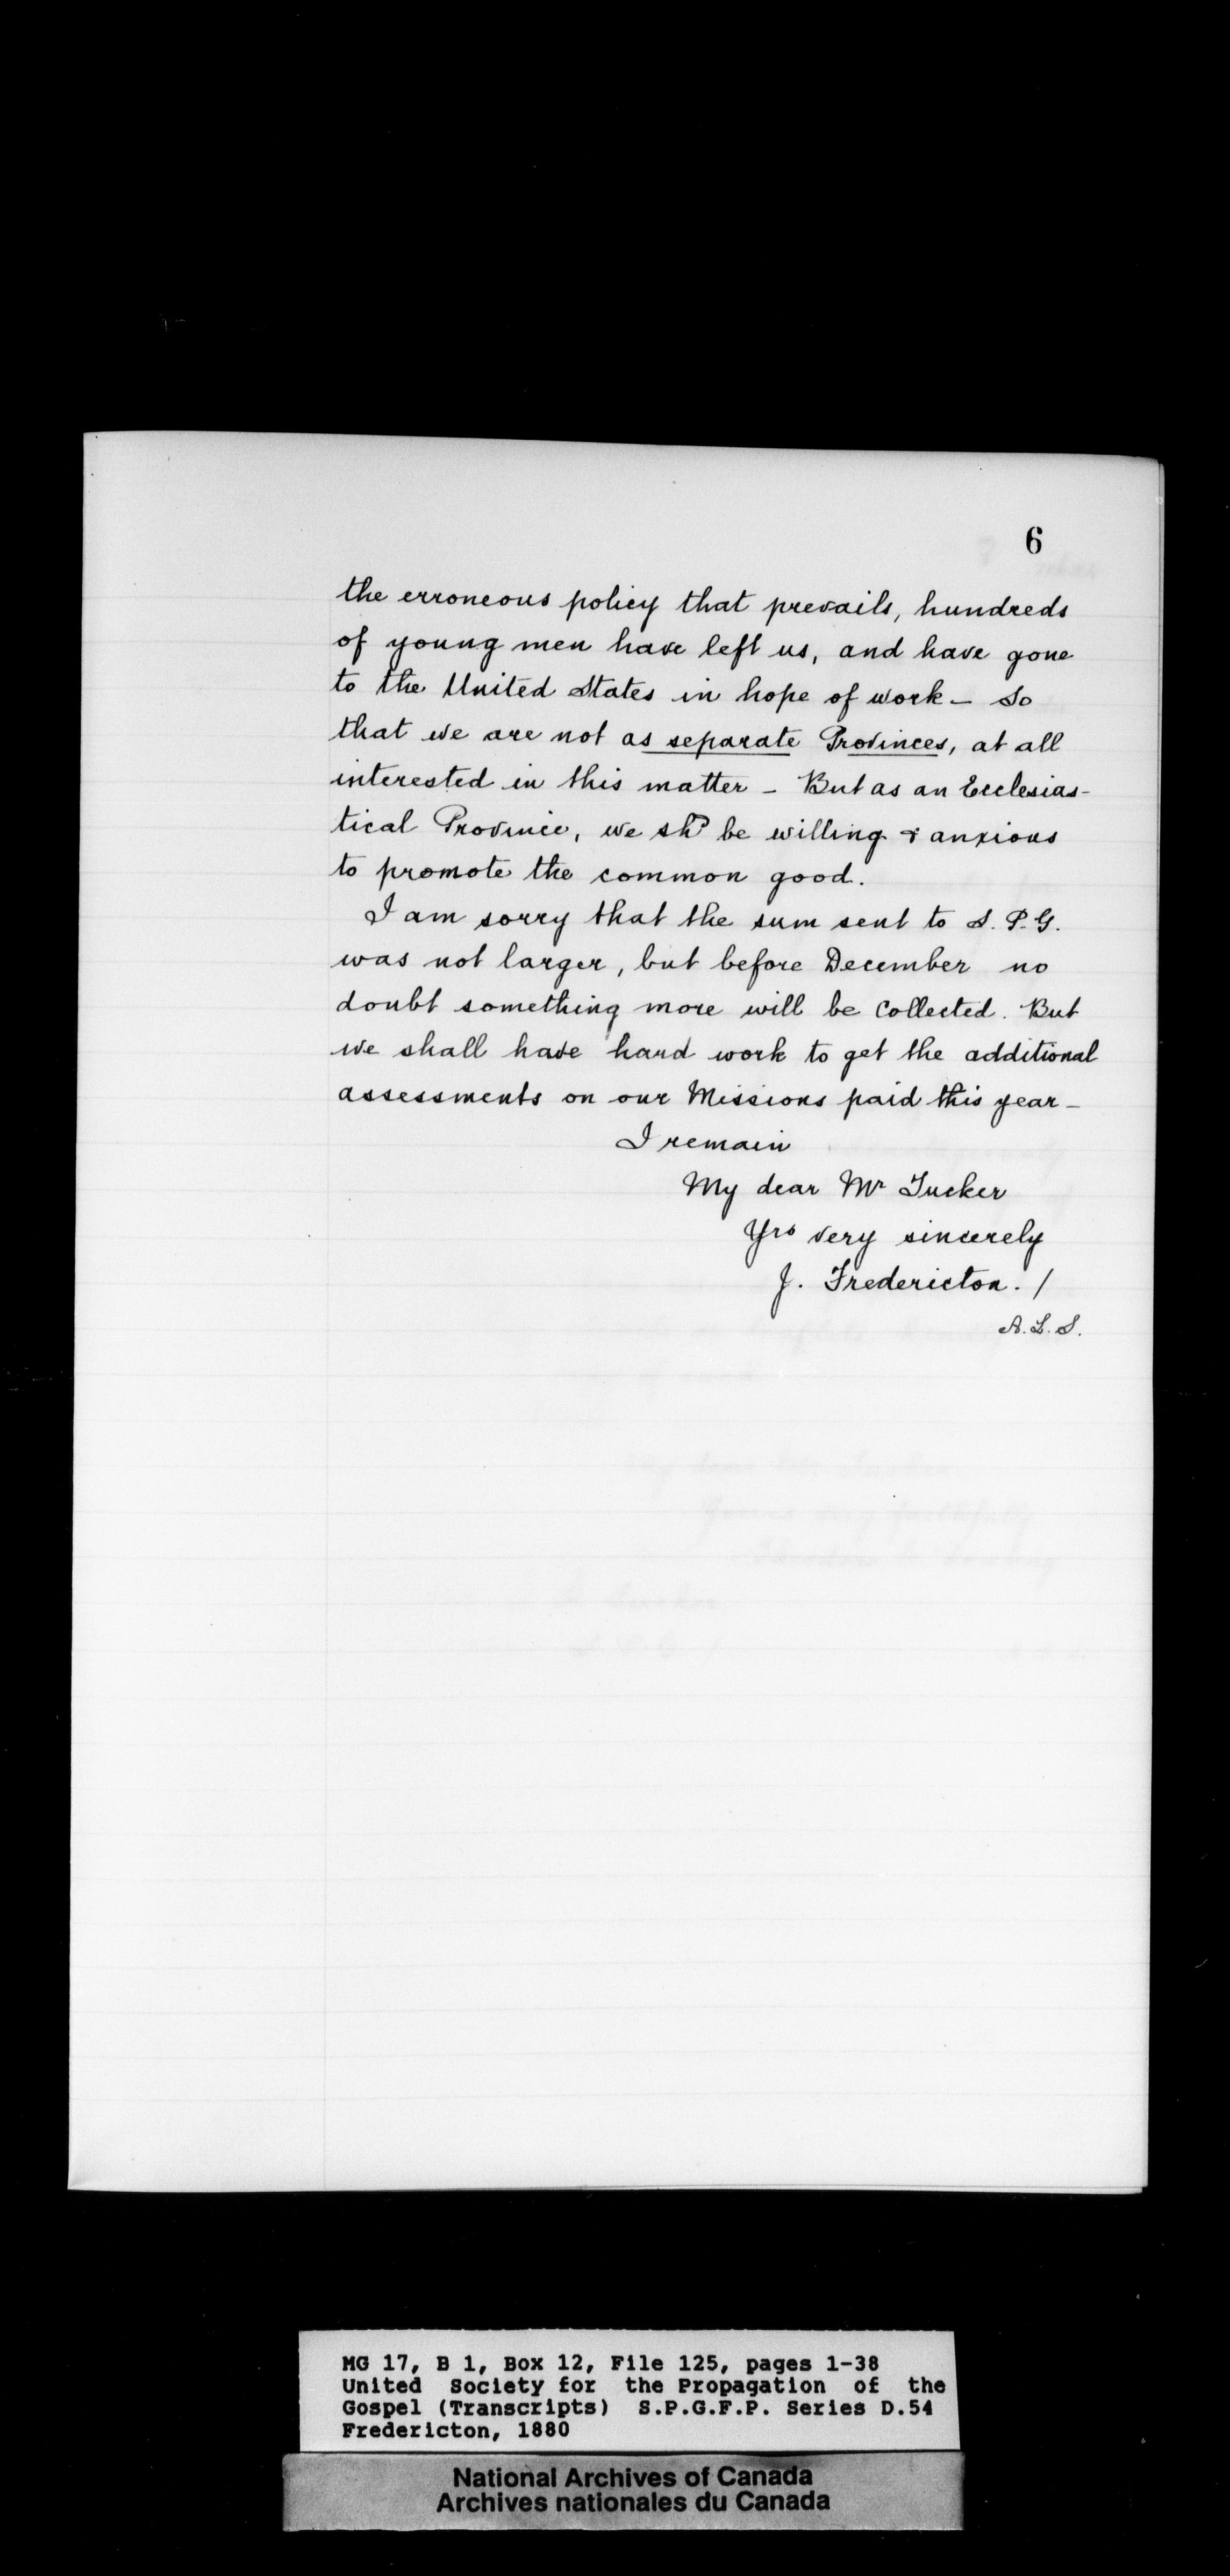 6
the erroneous policy that prevails, hundreds
of young men have left us, and have gone
to the United States in hope of work – So
that we are not as separate Provinces, at all
interested in this matter – But as an Ecclesias-
tical Province, we shd be willing & anxious
to promote the common good.
I am sorry that the sum sent to S. P. G.
was not larger, but before December no
doubt something more will be collected. But
we shall have hard work to get the additional
assessments on our Missions paid this year –
I remain
My dear Mr Tucker
Yrs very sincerely
J. Fredericton. /
A. L. S.
MG 17, B 1, Box 12, File 125, pages 1-38
United Society for the Propagation of the
Gospel (Transcripts) S.P.G.F.P. Series D.54
Fredericton, 1880
National Archives of Canada
Archives nationales du Canada